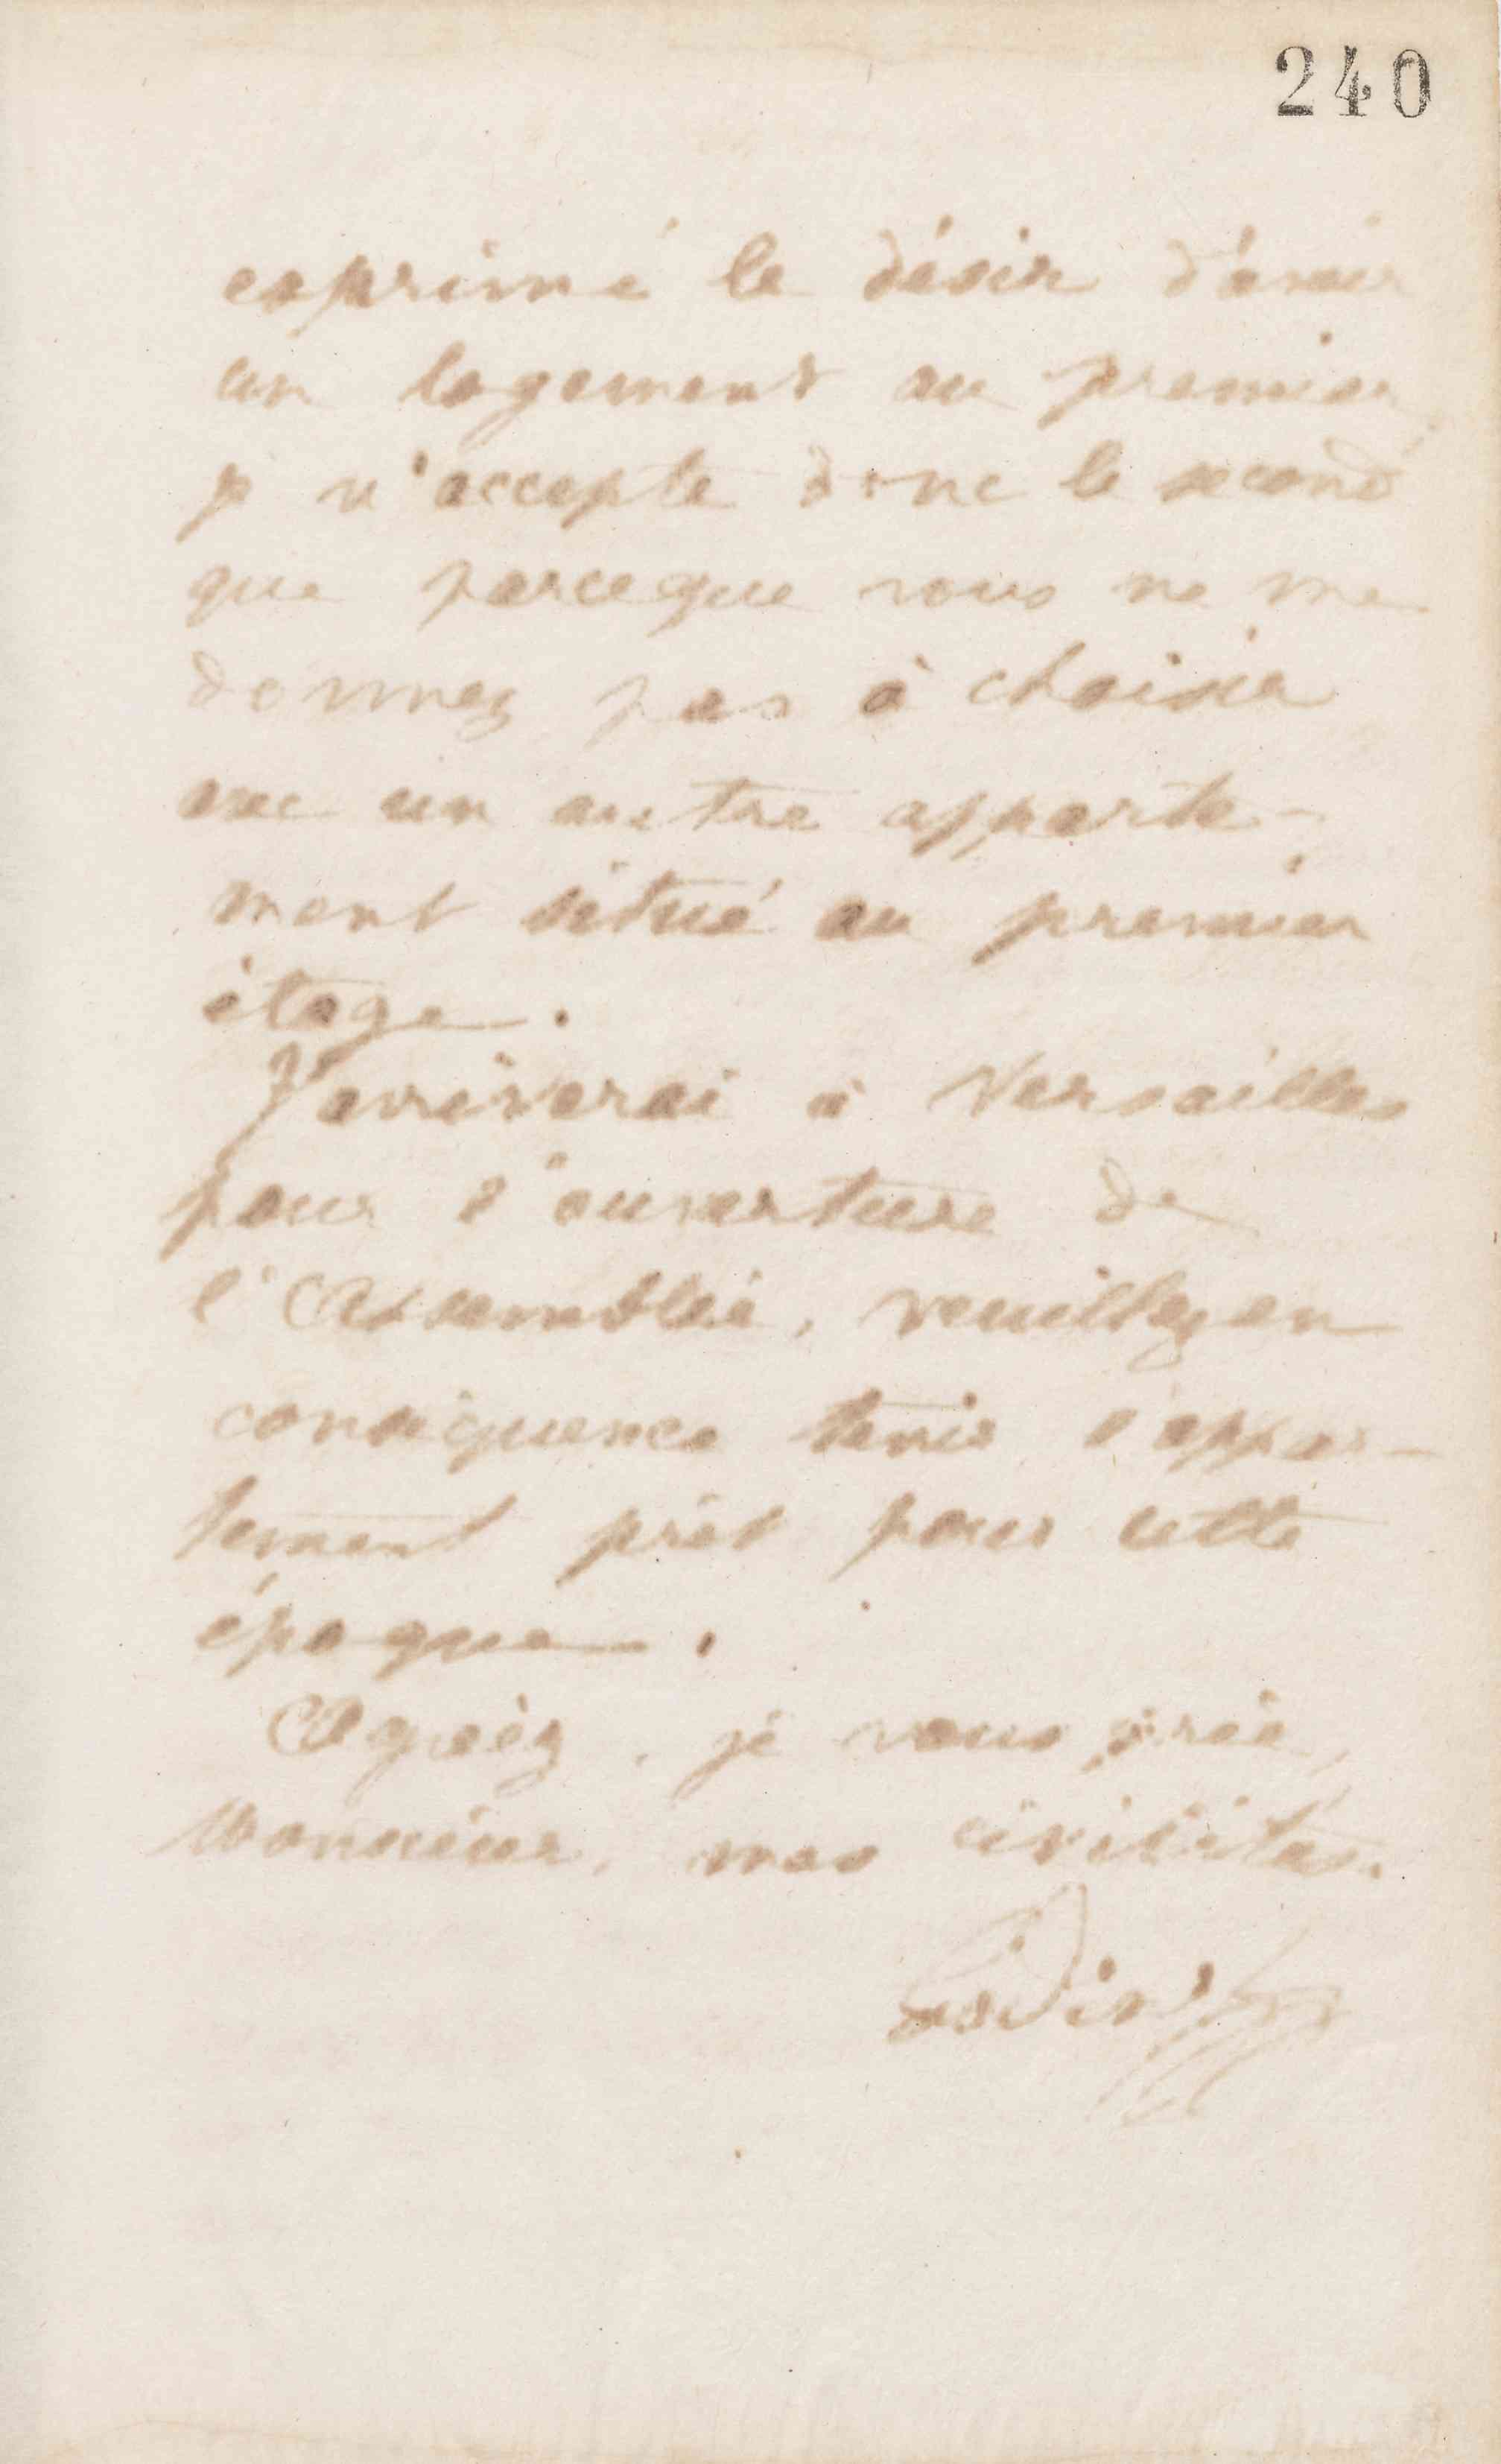 240
exprimé le désir d'avoir
un logement au premier
je n'accepte donc le second
que parceque vous ne me
donnez pas à choisir
avec un autre apparte-
ment situé au premier
étage.
J'arriverai à Versailles
pour l'ouverture de
l'Assemblée, veuillez en
conséquence tenir l'appar-
tement prêt pour cette
époque.
Agréez, je vous prie,
Monsieur, mes civilités.
Godin